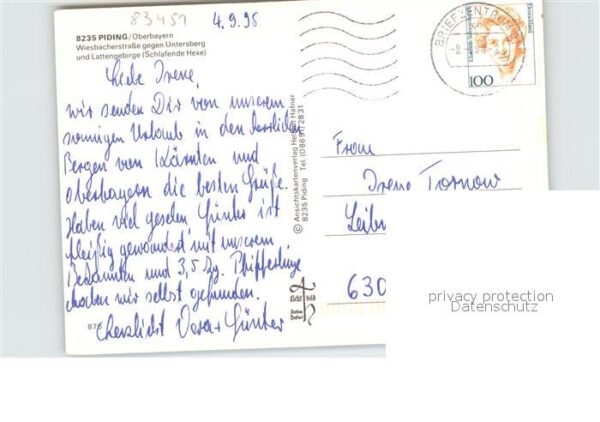 83451
4.9.98
8235 PIDING/Oberbayern
Wiesbacherstraße gegen Untersberg
und Lattengebirge (Schlafende Hexe)
Liebe Irene,
wir senden Dir von unserem
sonnigen Urlaub in den herrlichen
Bergen von Kärnten und
Oberbayern die besten Grüße.
Haben viel gesehen Günter ist
fleißig gewandert mit unserem
Bekannten und 3,5 kg. Pfifferlinge
haben wir selbst gefunden.
Herzlichst Dora + Günter
87
© Ansichtskartenverlag Heinz Hafner
8235 Piding Tel. (08651) 2831
BRIEFZENTRUM
100
Frau
Irene Tornow
Leibn
630
Licht bild
privacy protection
Datenschutz